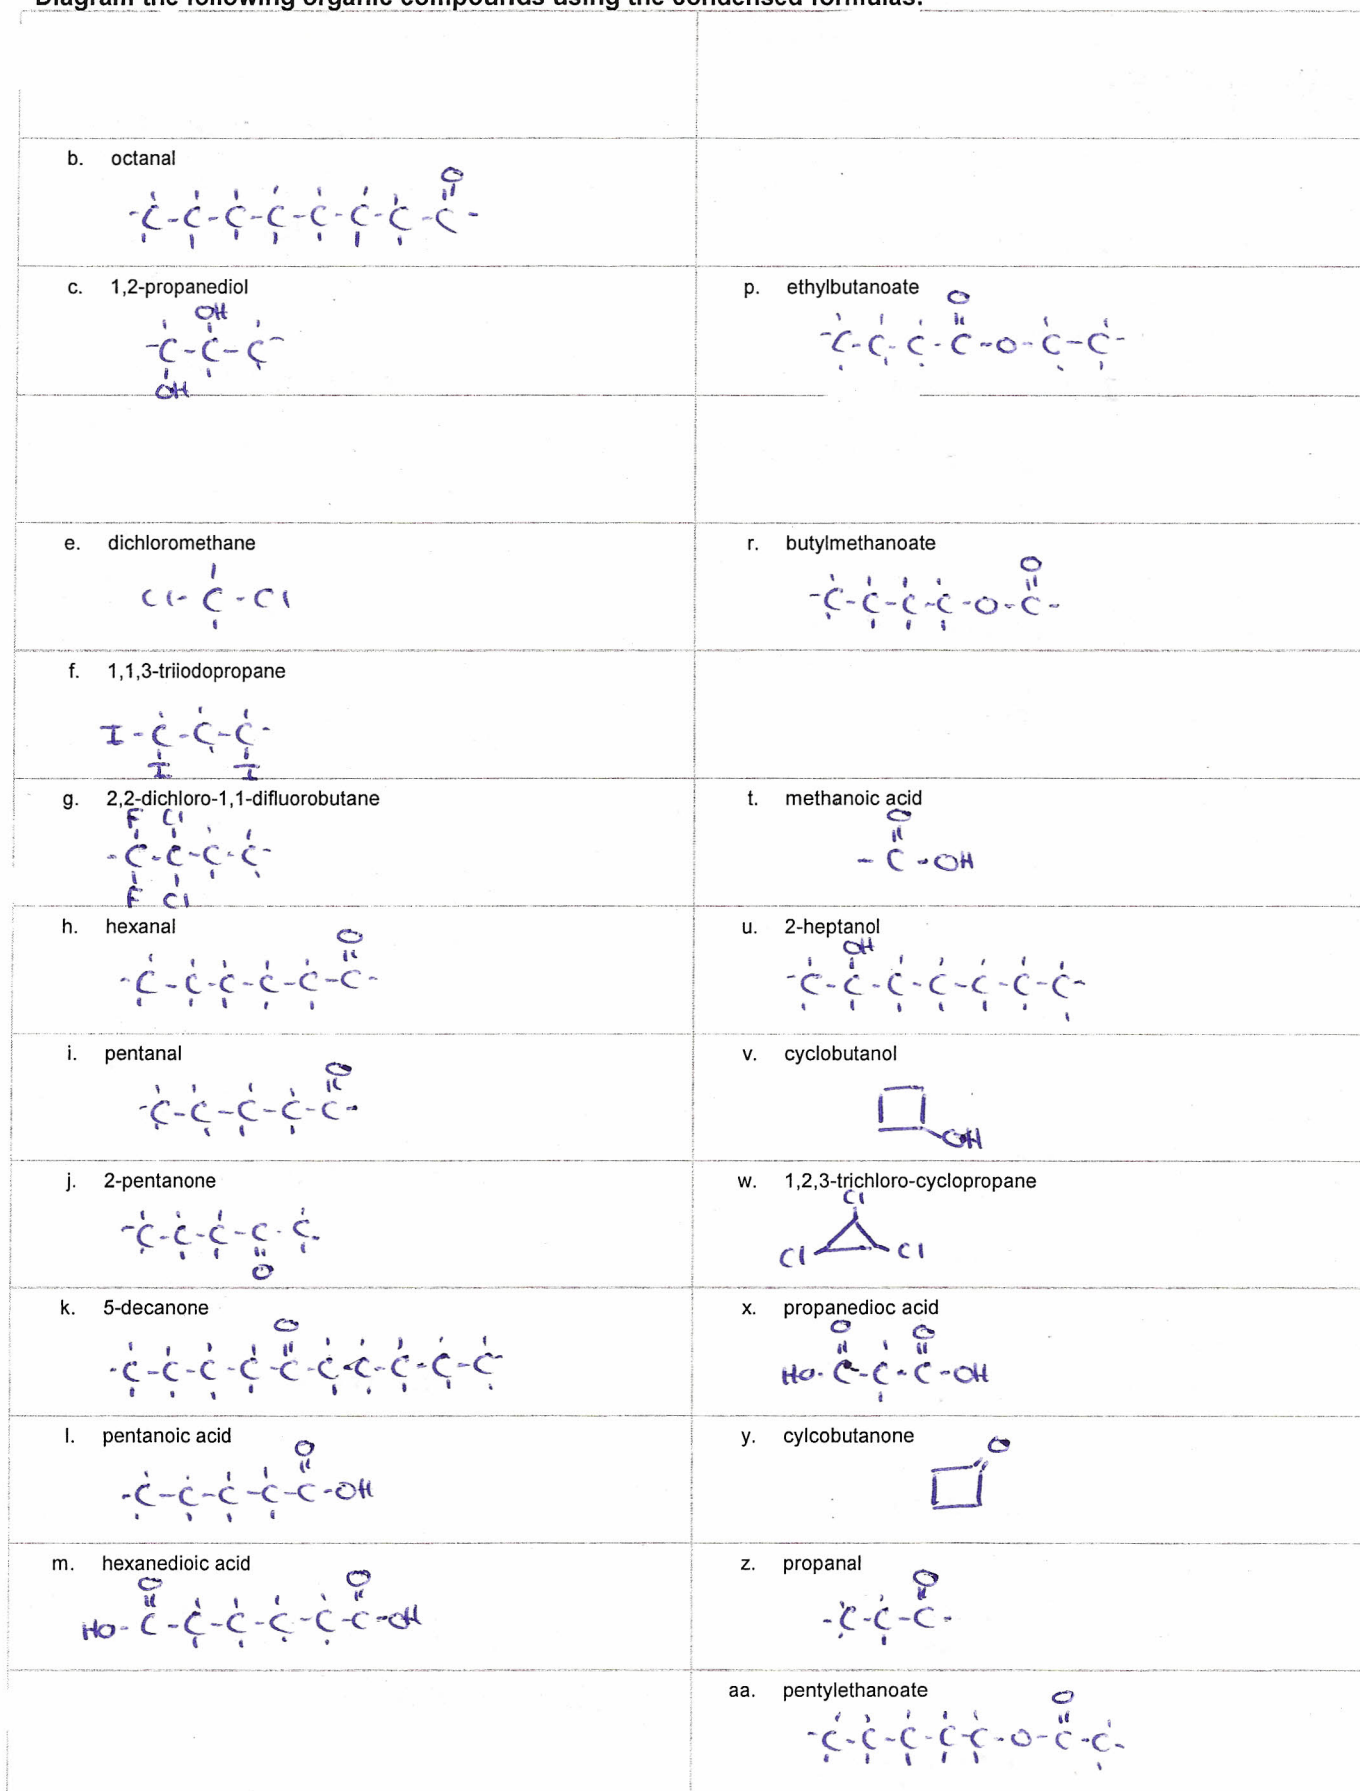 Diagram the following organic compounds using the condensed formulas:
b. octanal
O
-C-C-C-C-C-C-C-C-
c. 1,2-propanediol
OH
-C-C-C-
OH
e. dichloromethane
Cl-C-Cl
f. 1,1,3-triiodopropane
I-C-C-C-
I I
g. 2,2-dichloro-1,1-difluorobutane
F Cl
-C-C-C-C-
F Cl
h. hexanal
O
-C-C-C-C-C-C-
i. pentanal
O
-C-C-C-C-C-
j. 2-pentanone
-C-C-C-C-C-
O
k. 5-decanone
O
-C-C-C-C-C-C-C-C-C-C-
l. pentanoic acid
O
-C-C-C-C-C-OH
m. hexanedioic acid
O O
HO-C-C-C-C-C-C-OH
p. ethylbutanoate
O
-C-C-C-C-O-C-C-
r. butylmethanoate
O
-C-C-C-C-O-C-
t. methanoic acid
O
-C-OH
u. 2-heptanol
OH
-C-C-C-C-C-C-C-
v. cyclobutanol
OH
w. 1,2,3-trichloro-cyclopropane
Cl
Cl Cl
x. propanedioc acid
O O
HO-C-C-C-OH
y. cylcobutanone
O
z. propanal
O
-C-C-C-
aa. pentylethanoate
O
-C-C-C-C-C-O-C-C-